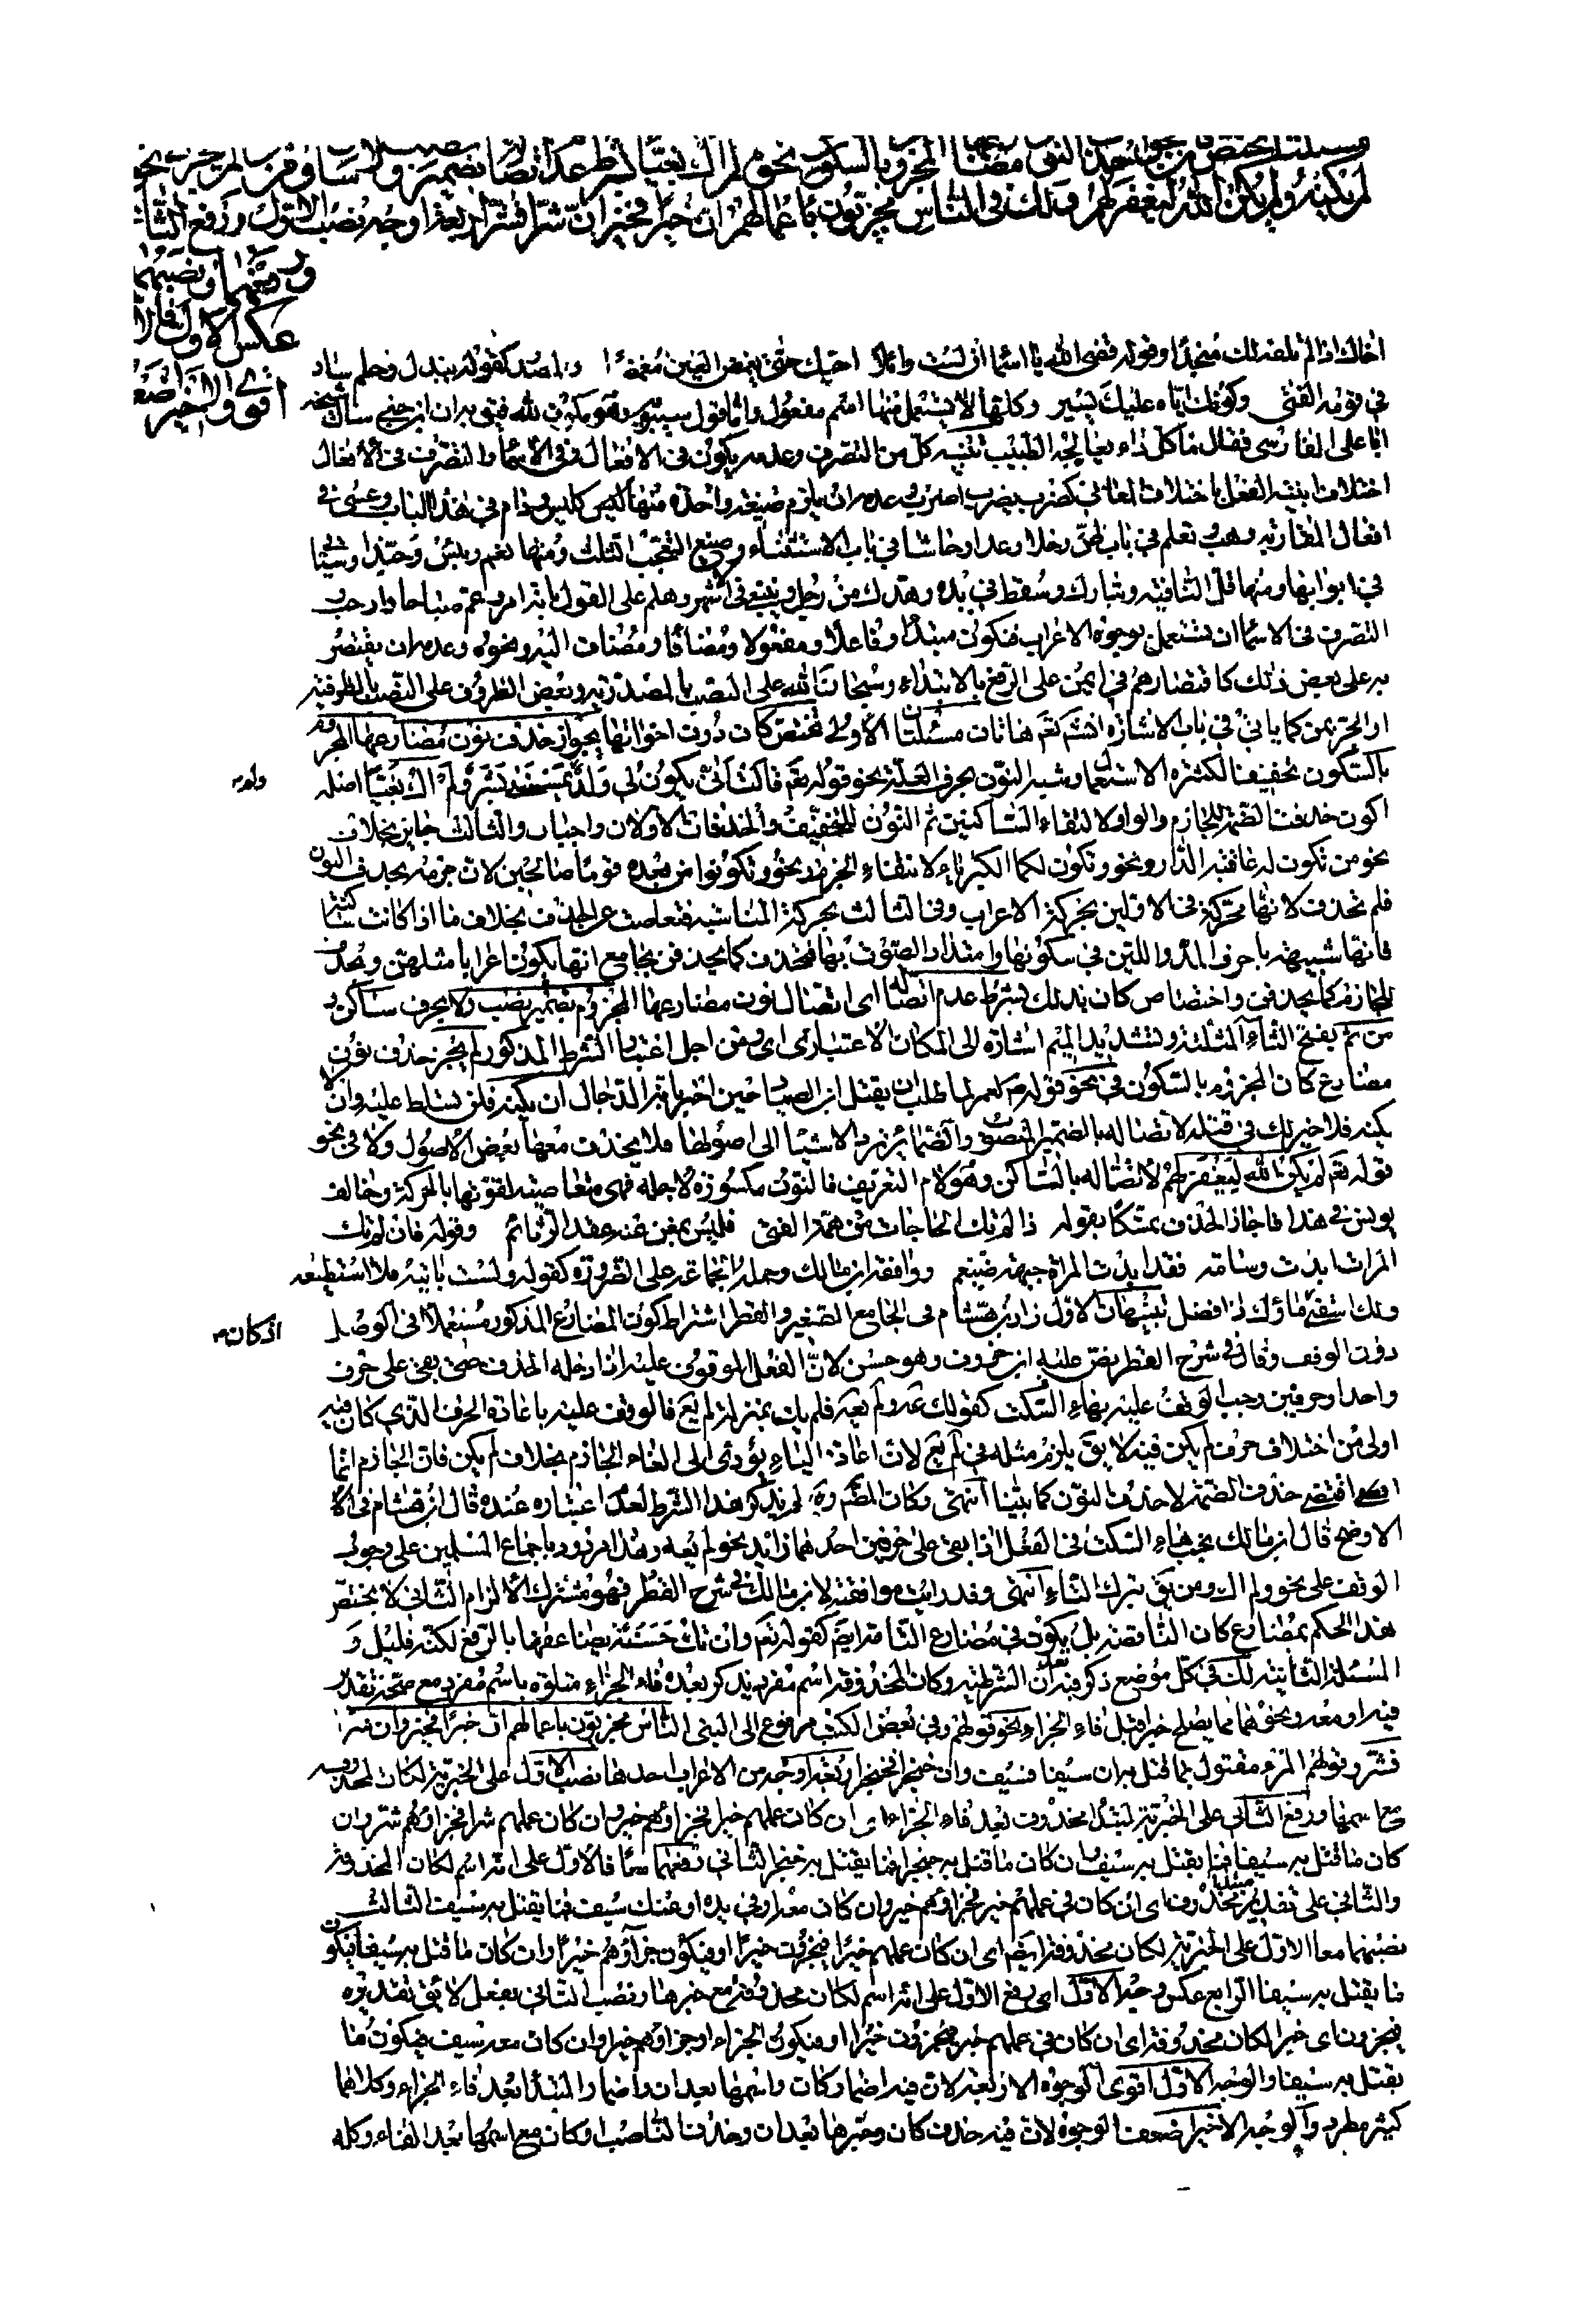 مسئلتان تختص كان بجواز حذف النون مضارعها المجزوم بالسكون نحو ولم اك بغيا بشرط عدم اتصالها بضمير نصب ولا ساكن ومن ثم لم يجز في نحو
لم يكنه ولم يكن الله ليغفر لهم ولك في الناس مجزيون باعمالهم ان خيرا فخير وان شرا فشر اربعة اوجه نصب الاول ورفع الثاني
ورفعهما ونصبهما
عكس الاول فالاول
اقوى والاخير اضعف
اخاك اذا لم تلفه لك منجدا وقوله قضى الله يا اسماء ان لست زائلا احبك حتى يغمض العين مغمض والمصدر كقوله ببذل وحلم ساد
في قومه الفتى وكونك اياه عليك يسير وكلها لا يستعمل منها اسم مفعول واما قول سيبويه هو مكون فيه فتى بهران ابن جني سال شيخه
ابا على الفارسى فقال ما كل داء يعالجه الطبيب تنبيه كل من التصرف وعدمه يكون في الافعال وفي الاسماء والتصرف في الافعال
اختلاف ابنية الفعل باختلاف المعاني كضرب يضرب اضرب وعدمه ان يلزم صيغة واحدة منها ليس كليس ودام في هذا الباب وعسى في
افعال المقاربة وهب وتعلم في باب ظن وخلا وعدا وحاشا في باب الاستثناء وصيغ التعجب الثلاث ومنها نعم وبئس وحبذا وسيأتي
في ابوابها ومنها قل النافية وتبارك وسقط في يده وهدك من رجل وينبغي في الاشهر وهلم على القول بانه امر وعم صباحا
التصرف في الاسماء ان تستعمل بوجوه الاعراب فتكون مبتدأ وفاعلا ومفعولا ومضافا ومضاف اليه ونحوه وعدمه ان يقتصر
به على بعض ذلك كاقتصارهم في ايمن على الرفع بالابتداء وسبحان الله على النصب بالمصدرية وبعض الظروف على النصب بالظرفية
او الجر بمن كما ياتي في باب الاشارة ان شاء الله تعالى هاتان مسئلتان الاولى تختص كان دون اخواتها بجواز حذف نون مضارعها المجزوم
بالسكون تخفيفا لكثرة الاستعمال وشبه النون بحرف العلة نحو قوله تعالى قالت انى يكون لي ولد ولم يمسسني بشر ولم اك بغيا اصله
ولم
اكون حذفت الضمة للجازم والواو لالتقاء الساكنين ثم النون للتخفيف والحذفان الاولان واجبان والثالث جايز بخلاف
نحو من تكون له عاقبة الدار ونحو وتكون لكما الكبرياء لانتفاء الجزم ونحو وتكونوا من بعده قوما صالحين لان جزمه بحذف النون
فلم تحذف لانها محركة في الاولين بحركة الاعراب وفي الثالث بحركة المناسبة فتعاصت عن الحذف بخلاف ما اذا كانت ساكنة
فانها شبيهة باحرف المد واللين في سكونها وامتداد الصوت بها فتحذف كما يحذفن بجامع انها يكون اعرابا مثلهن وتحذف
للجازم كما يحذفن واختصاص كان بذلك بشرط عدم اتصاله اى اتصال نون مضارعها المجزوم بضمير نصب ولا بحرف ساكن و
من ثم بفتح الثاء المثلثة وتشديد الميم اشارة الى المكان الاعتباري اى ومن اجل اعتبار الشرط المذكور لم يجز حذف نون
مضارع كان المجزوم بالسكون في نحو قوله صم لعمر لما طلب ان يقتل ابن الصياد حين اخبر بانه الدجال ان يكنه فلن تسلط عليه وان لا
يكنه فلا خير لك في قتله لاتصاله بالضمير المنصوب والضمائر ترد الاشياء الى اصولها فلا يحذف معها بعض الاصول ولا في نحو
قوله تعم لم يكن الله ليغفر لهم لاتصاله بالساكن وهو لام التعريف فالنون مكسورة لاجله فهي متعاصية لقوتها بالحركة وخالف
يونس في هذا فاجاز الحذف تمسكا بقوله اذا لم تك الحاجات من همة الفتى فليس بمغن عنه عقد الرتائم وقوله فان لم تك
المرآة ابدت وسامة فقد ابدت المرآة جبهة ضيغم ووافقه ابن مالك وحمله الجماعة على الضرورة كقوله ولست بآتيه ولا استطيعه
ولك اسقني ان كان ماؤك ذا فضل تنبيهان الاول زاد ابن هشام في الجامع الصغير والقطر اشتراط كون المضارع المذكور مستعملا في الوصل
ان كان
دون الوقف وقال في شرح القطر نص عليه ابن خروف وهو حسن لان الفعل الموقوف عليه اذا دخله الحذف حتى بقي على حرف
واحد او حرفين وجب الوقف عليه بهاء السكت كقولك عه ولم يعه فلم يك بمنزلة لم يع فالوقف عليه باعادة الحرف الذي كان فيه
اولى من اختلاف حرف لم يكن فيه لا يق يلزم مثله في لم يع لان اعادة الياء يؤدى الى الغاء الجازم بخلاف لم يكن فان الجازم انما
اقتضى حذف الضمة لا حذف النون كما بينا انتهى وكان المص لم يذكر هذا الشرط لعدم اعتباره عنده قال ابن هشام في
الاوضح قال ابن مالك تجب هاء السكت في الفعل اذا بقي على حرفين احدهما زائد نحو لم يعه وهذا مردود باجماع المسلمين على وجوب
الوقف على نحو ولم اك ومن تق بترك الهاء انتهى وقد رايت موافقته لابن مالك في شرح القطر فهو مشترك الالزام الثاني لا يختص
هذا الحكم بمضارع كان الناقصة بل يكون في مضارع التامة ايضا كقوله تعم وان تك حسنة يضاعفها بالرفع لكنه قليل و
المسئلة الثانية لك في كل موضع ذكر فيه ان الشرطية وكان المحذوفة اسم مفرد يذكر بعده فاء الجزاء متلوة باسم مفرد مع صحة تقدير
فيه او معه ونحوهما مما يصلح خبرا قبل فاء الجزاء نحو قولهم وفي بعض الكتب مرفوع الى النبي الناس مجزيون باعمالهم ان خيرا فخير وان شرا
فشر وقولهم المرء مقتول بما قتل به ان سيفا فسيف وان خنجرا فخنجر اربعة اوجه من الاعراب احدها نصب الاول على الخبرية لكان المحذوفة
مع اسمها ورفع الثاني على الخبرية لمبتدأ محذوف بعد فاء الجزاء اى ان كان عملهم خيرا فجزاؤهم خير وان كان عملهم شرا فجزاؤهم شر وان
كان ما قتل به سيفا فما يقتل به سيف وان كان ما قتل به خنجرا فما يقتل به خنجر الثاني رفعهما معا فالاول على انه اسم لكان المحذوفة
والثاني على تقدير مبتدأ محذوف اى ان كان في عملهم خير فجزاؤهم خير وان كان معه او في يده او هناك سيف فما يقتل به سيف الثالث
نصبهما معا الاول على الخبرية لكان محذوفة ايضا اى ان كان عملهم خيرا فيجزون خيرا او فيكون جزاؤهم خيرا وان كان ما قتل به سيفا فيكون
ما يقتل به سيفا الرابع عكس وجه الاول اى رفع الاول على انه اسم لكان محذوفة مع خبرها ونصب الثاني بفعل لائق تقديره
فيجزون اى خبرا لكان محذوفة اى ان كان في عملهم خير فيجزون خيرا او فيكون الجزاء او جزاؤهم خيرا وان كان معه سيف فيكون ما
يقتل به سيفا والوجه الاول اقوى الوجوه الاربعة لان فيه اضمار كان واسمها بعد ان واضمار المبتدأ بعد فاء الجزاء وكلاهما
كثير مطرد والوجه الاخير اضعف الوجوه لان فيه حذف كان وخبرها بعد ان وحذف الناصب او كان مع اسمها بعد الفاء وكله